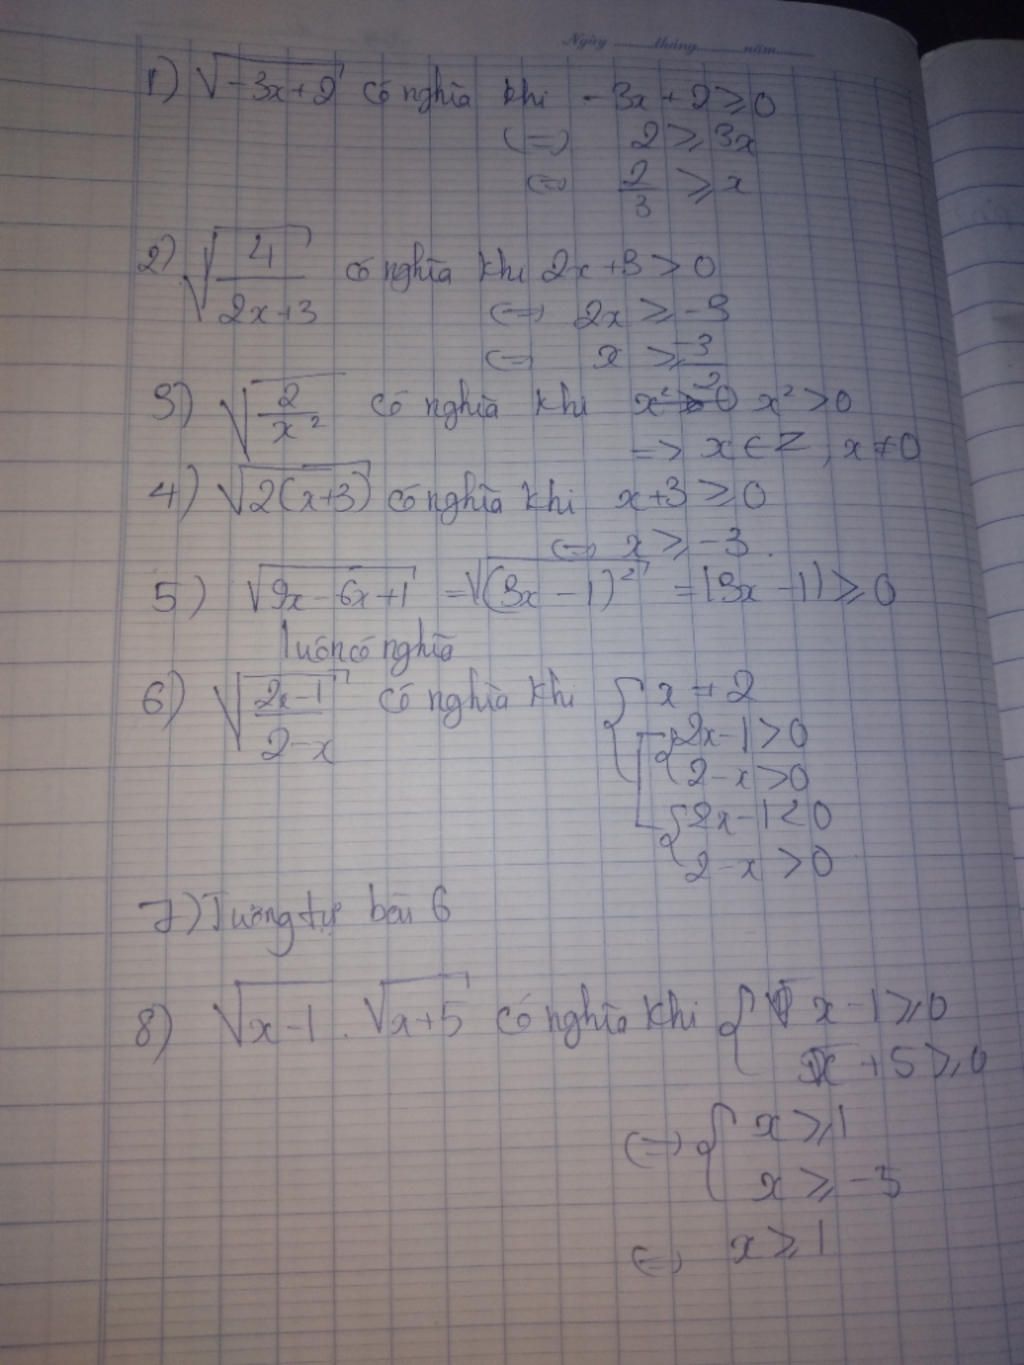 Ngày tháng năm
1) √-3x+2 có nghĩa khi -3x+2 ⩾ 0
(=) 2 ⩾ 3x
(=) 2/3 ⩾ x
2) √4/2x+3 có nghĩa khi 2x+3 > 0
(=) 2x ⩾ -3
(=) x ⩾ -3/2
3) √2/x² có nghĩa khi x² > 0
=> x ∈ Z, x ≠ 0
4) √2(x+3) có nghĩa khi x+3 ⩾ 0
(=) x ⩾ -3.
5) √9x-6x+1 = √(3x-1)² = |3x-1| ⩾ 0
luôn có nghĩa
6) √2x-1/2-x có nghĩa khi { x ≠ 2
[ { 2x-1 > 0
2-x > 0
{ 2x-1 < 0
2-x > 0
7) Tương tự bài 6
8) √x-1 . √x+5 có nghĩa khi { x-1 ⩾ 0
x+5 ⩾ 0
(=) { x ⩾ 1
x ⩾ -5
(=) x ⩾ 1